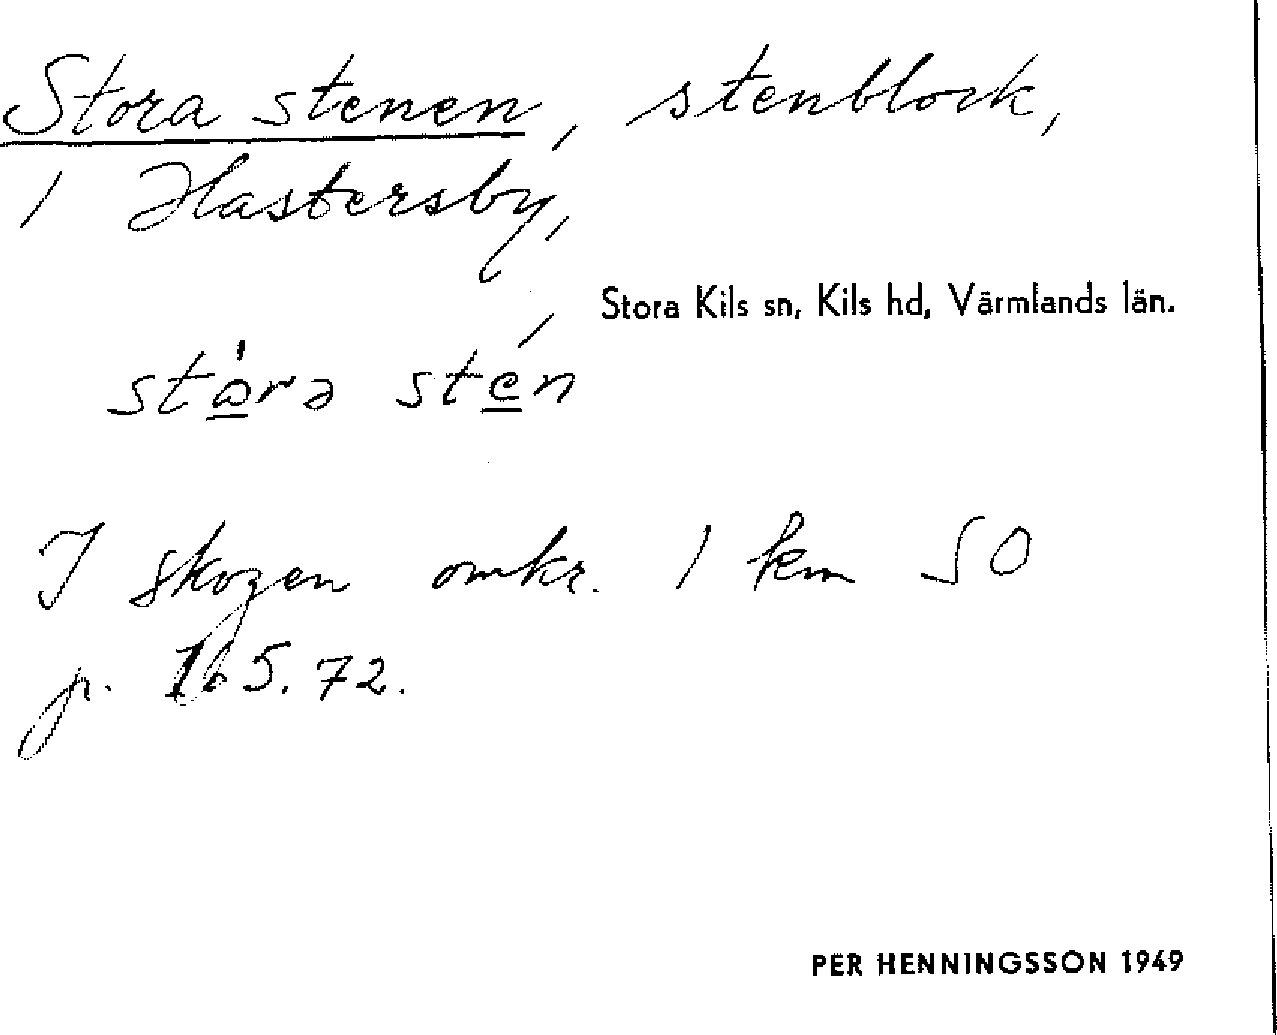 Stora stenen, stenblock,
1 Hastersby,
Stora Kils sn, Kils hd, Värmlands län.
I skogen omkr. 1 km SO
p. 165.72.
PER HENNINGSSON 1949